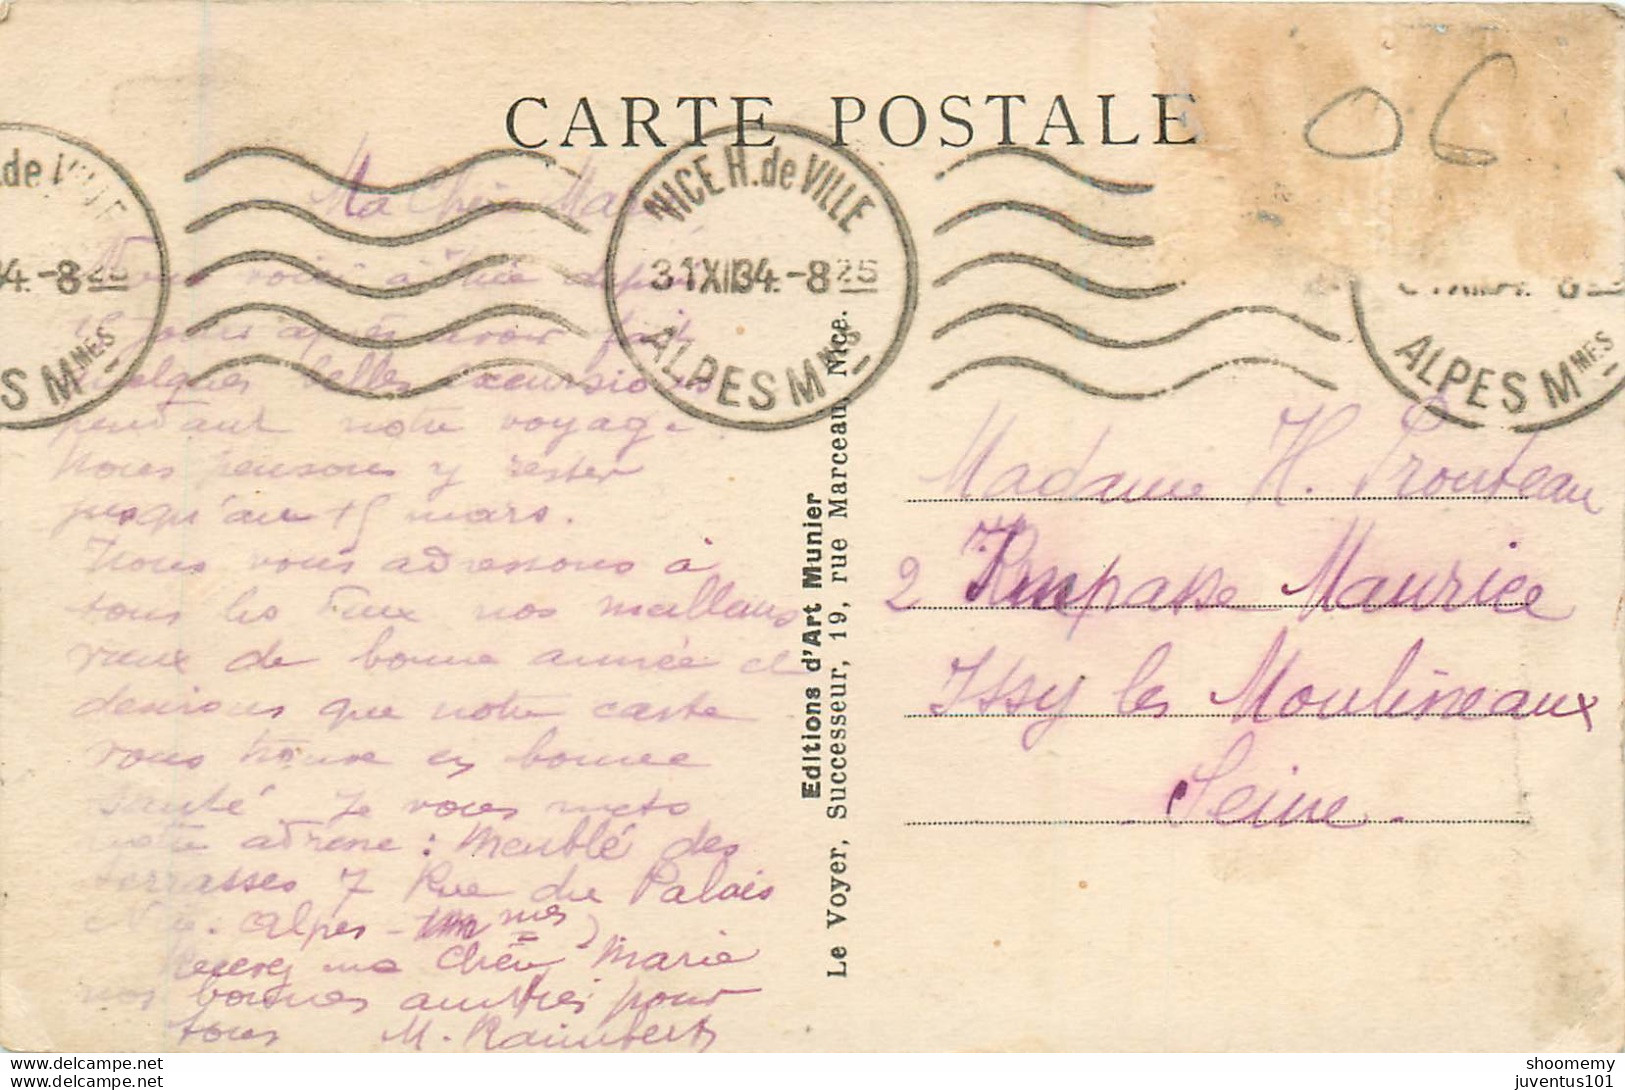 CARTE POSTALE
06
NICE H. de VILLE
31 XII 34 - 8 25
ALPES Mmes
.de VILLE
34 - 8 25
S Mmes
ALPES Mmes
Ma Chère Marie
Nous voici à Nice depuis
15 jours après avoir fait
quelques belles excursions
pendant notre voyage
Nous pensons y rester
jusqu'au 15 mars.
Nous vous adressons à
tous les deux nos meilleurs
vœux de bonne année et
desirons que notre carte
vous trouve en bonne
santé Je vous mets
notre adresse : Meublé des
terrasses 7 Rue du Palais
Nice. Alpes - mes
Recevez ma Chère Marie
nos bonnes amitiés pour
tous M. Raimbert
Editions d'Art Munier
Le Voyer, Successeur, 19, rue Marceau, Nice.
Madame H. Prouteau
2 Impasse Maurice
Issy les Moulineaux
Seine.
shoomemy
juventus101